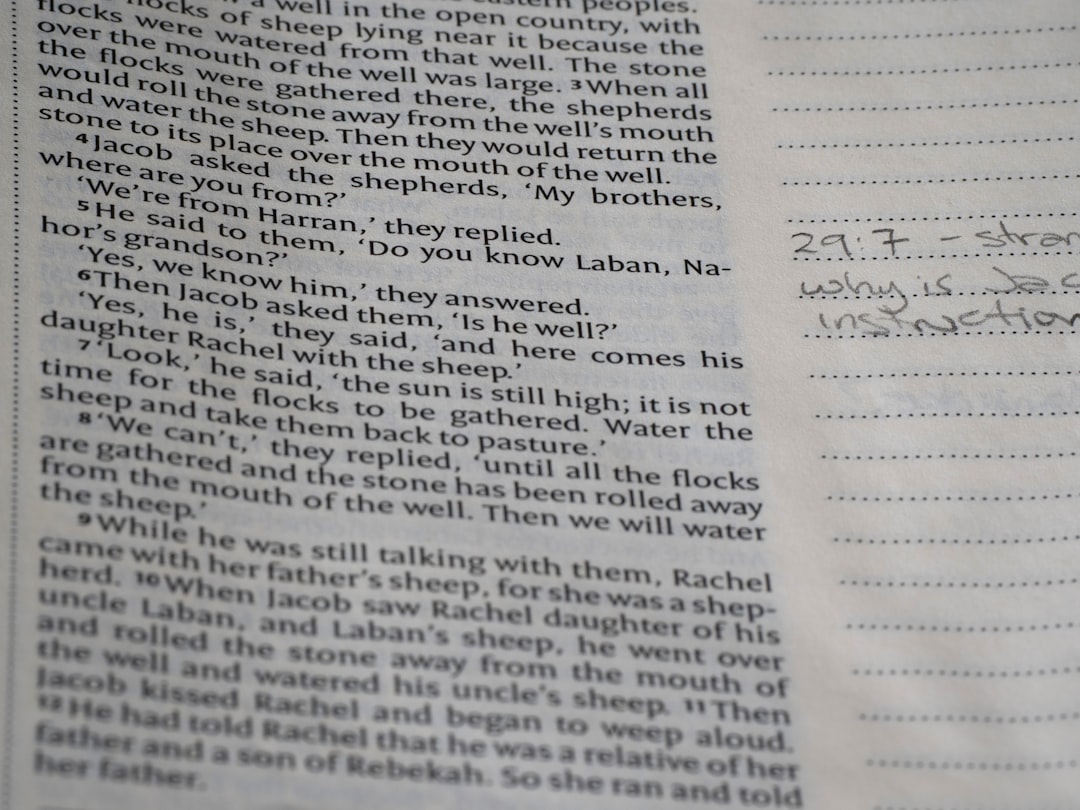 eastern peoples.
a well in the open country, with
flocks of sheep lying near it because the
flocks were watered from that well. The stone
over the mouth of the well was large. 3 When all
the flocks were gathered there, the shepherds
would roll the stone away from the well's mouth
and water the sheep. Then they would return the
stone to its place over the mouth of the well.
4 Jacob asked the shepherds, ‘My brothers,
where are you from?’
‘We're from Harran,’ they replied.
5 He said to them, ‘Do you know Laban, Na-
hor's grandson?’
‘Yes, we know him,’ they answered.
6 Then Jacob asked them, ‘Is he well?’
‘Yes, he is,’ they said, ‘and here comes his
daughter Rachel with the sheep.’
7 ‘Look,’ he said, ‘the sun is still high; it is not
time for the flocks to be gathered. Water the
sheep and take them back to pasture.’
8 ‘We can't,’ they replied, ‘until all the flocks
are gathered and the stone has been rolled away
from the mouth of the well. Then we will water
the sheep.’
9 While he was still talking with them, Rachel
came with her father's sheep, for she was a shep-
herd. 10 When Jacob saw Rachel daughter of his
uncle Laban, and Laban's sheep, he went over
and rolled the stone away from the mouth of
the well and watered his uncle's sheep. 11 Then
Jacob kissed Rachel and began to weep aloud.
12 He had told Rachel that he was a relative of her
father and a son of Rebekah. So she ran and told
her father.
29:7 - stran
why is Jac
instruction